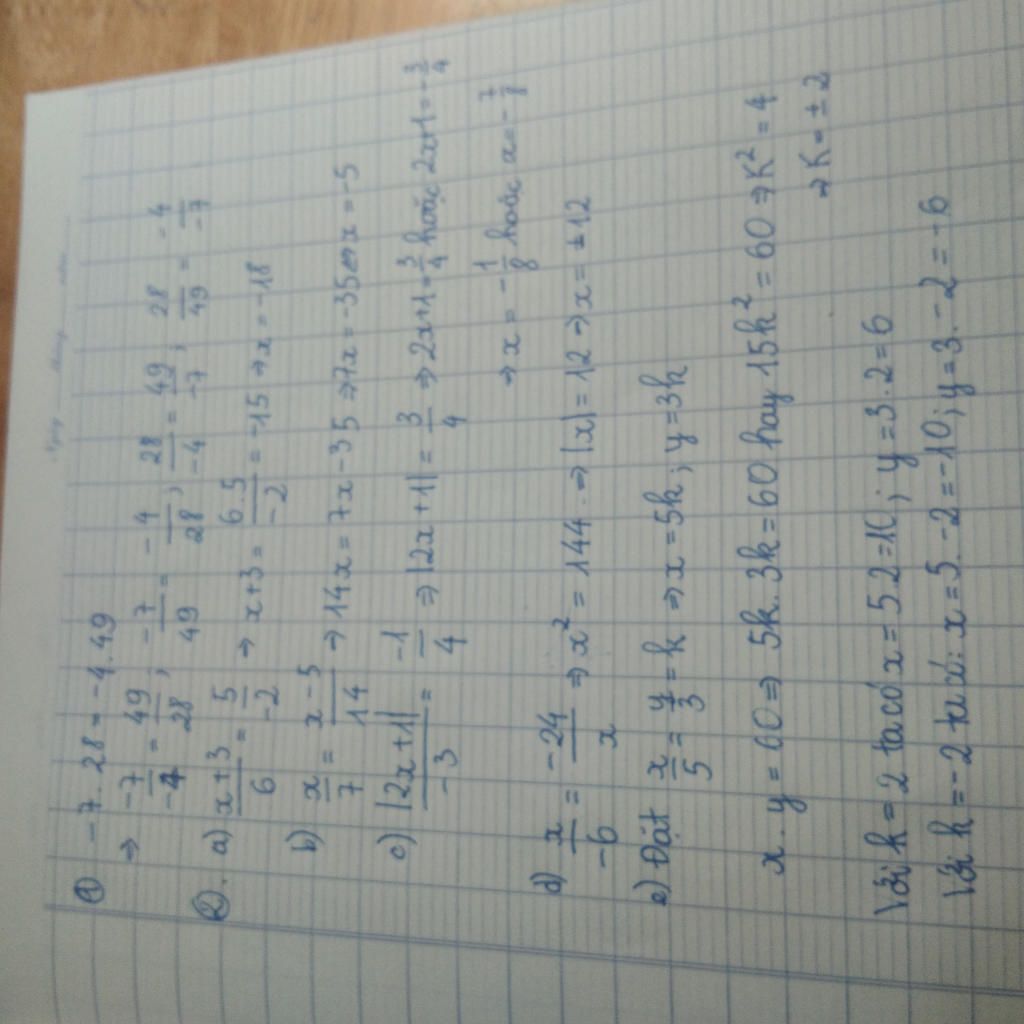 Ngày tháng năm
① -7.28 = -4.49
⇒ -7/-4 = 49/28; -7/49 = -4/28; 28/-4 = 49/-7; 28/49 = -4/-7
②. a) x+3/6 = 5/-2 ⇒ x+3 = 6.5/-2 = -15 ⇒ x = -18
b) x/7 = x-5/14 ⇒ 14x = 7x-35 ⇒ 7x = -35 ⇔ x = -5
c) |2x+1|/-3 = -1/4 ⇒ |2x+1| = 3/4 ⇒ 2x+1 = 3/4 hoặc 2x+1 = -3/4
⇒ x = -1/8 hoặc x = -7/8
d) x/-6 = -24/x ⇒ x² = 144 ⇒ |x| = 12 ⇒ x = ±12
e) Đặt x/5 = y/3 = k ⇒ x = 5k; y = 3k
x.y = 60 ⇒ 5k.3k = 60 hay 15k² = 60 ⇒ K² = 4
⇒ K = ±2
Với k = 2 ta có x = 5.2 = 10; y = 3.2 = 6
Với k = -2 ta có: x = 5.-2 = -10; y = 3.-2 = -6